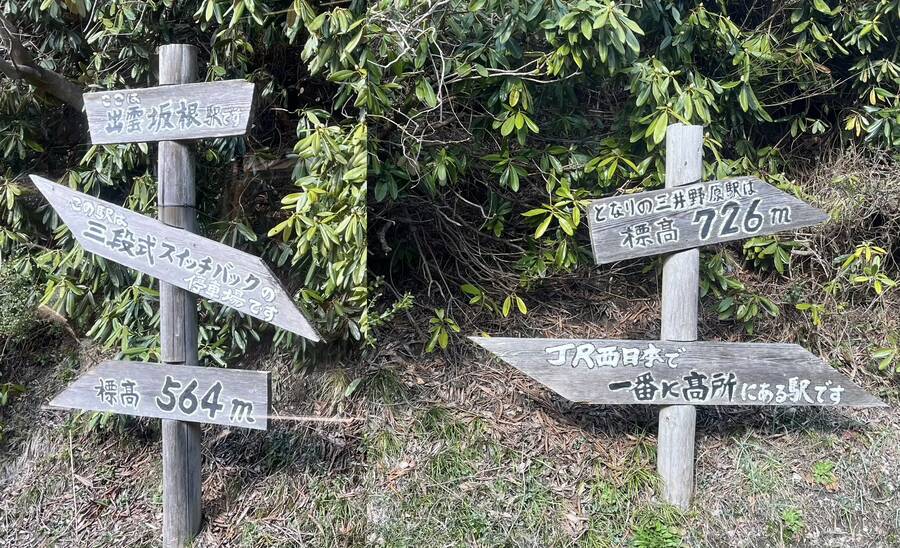 ここは
出雲坂根駅です
この駅は
三段式スイッチバックの
停車場です
標高 564m
となりの三井野原駅は
標高 726m
JR西日本で
一番K高所にある駅です